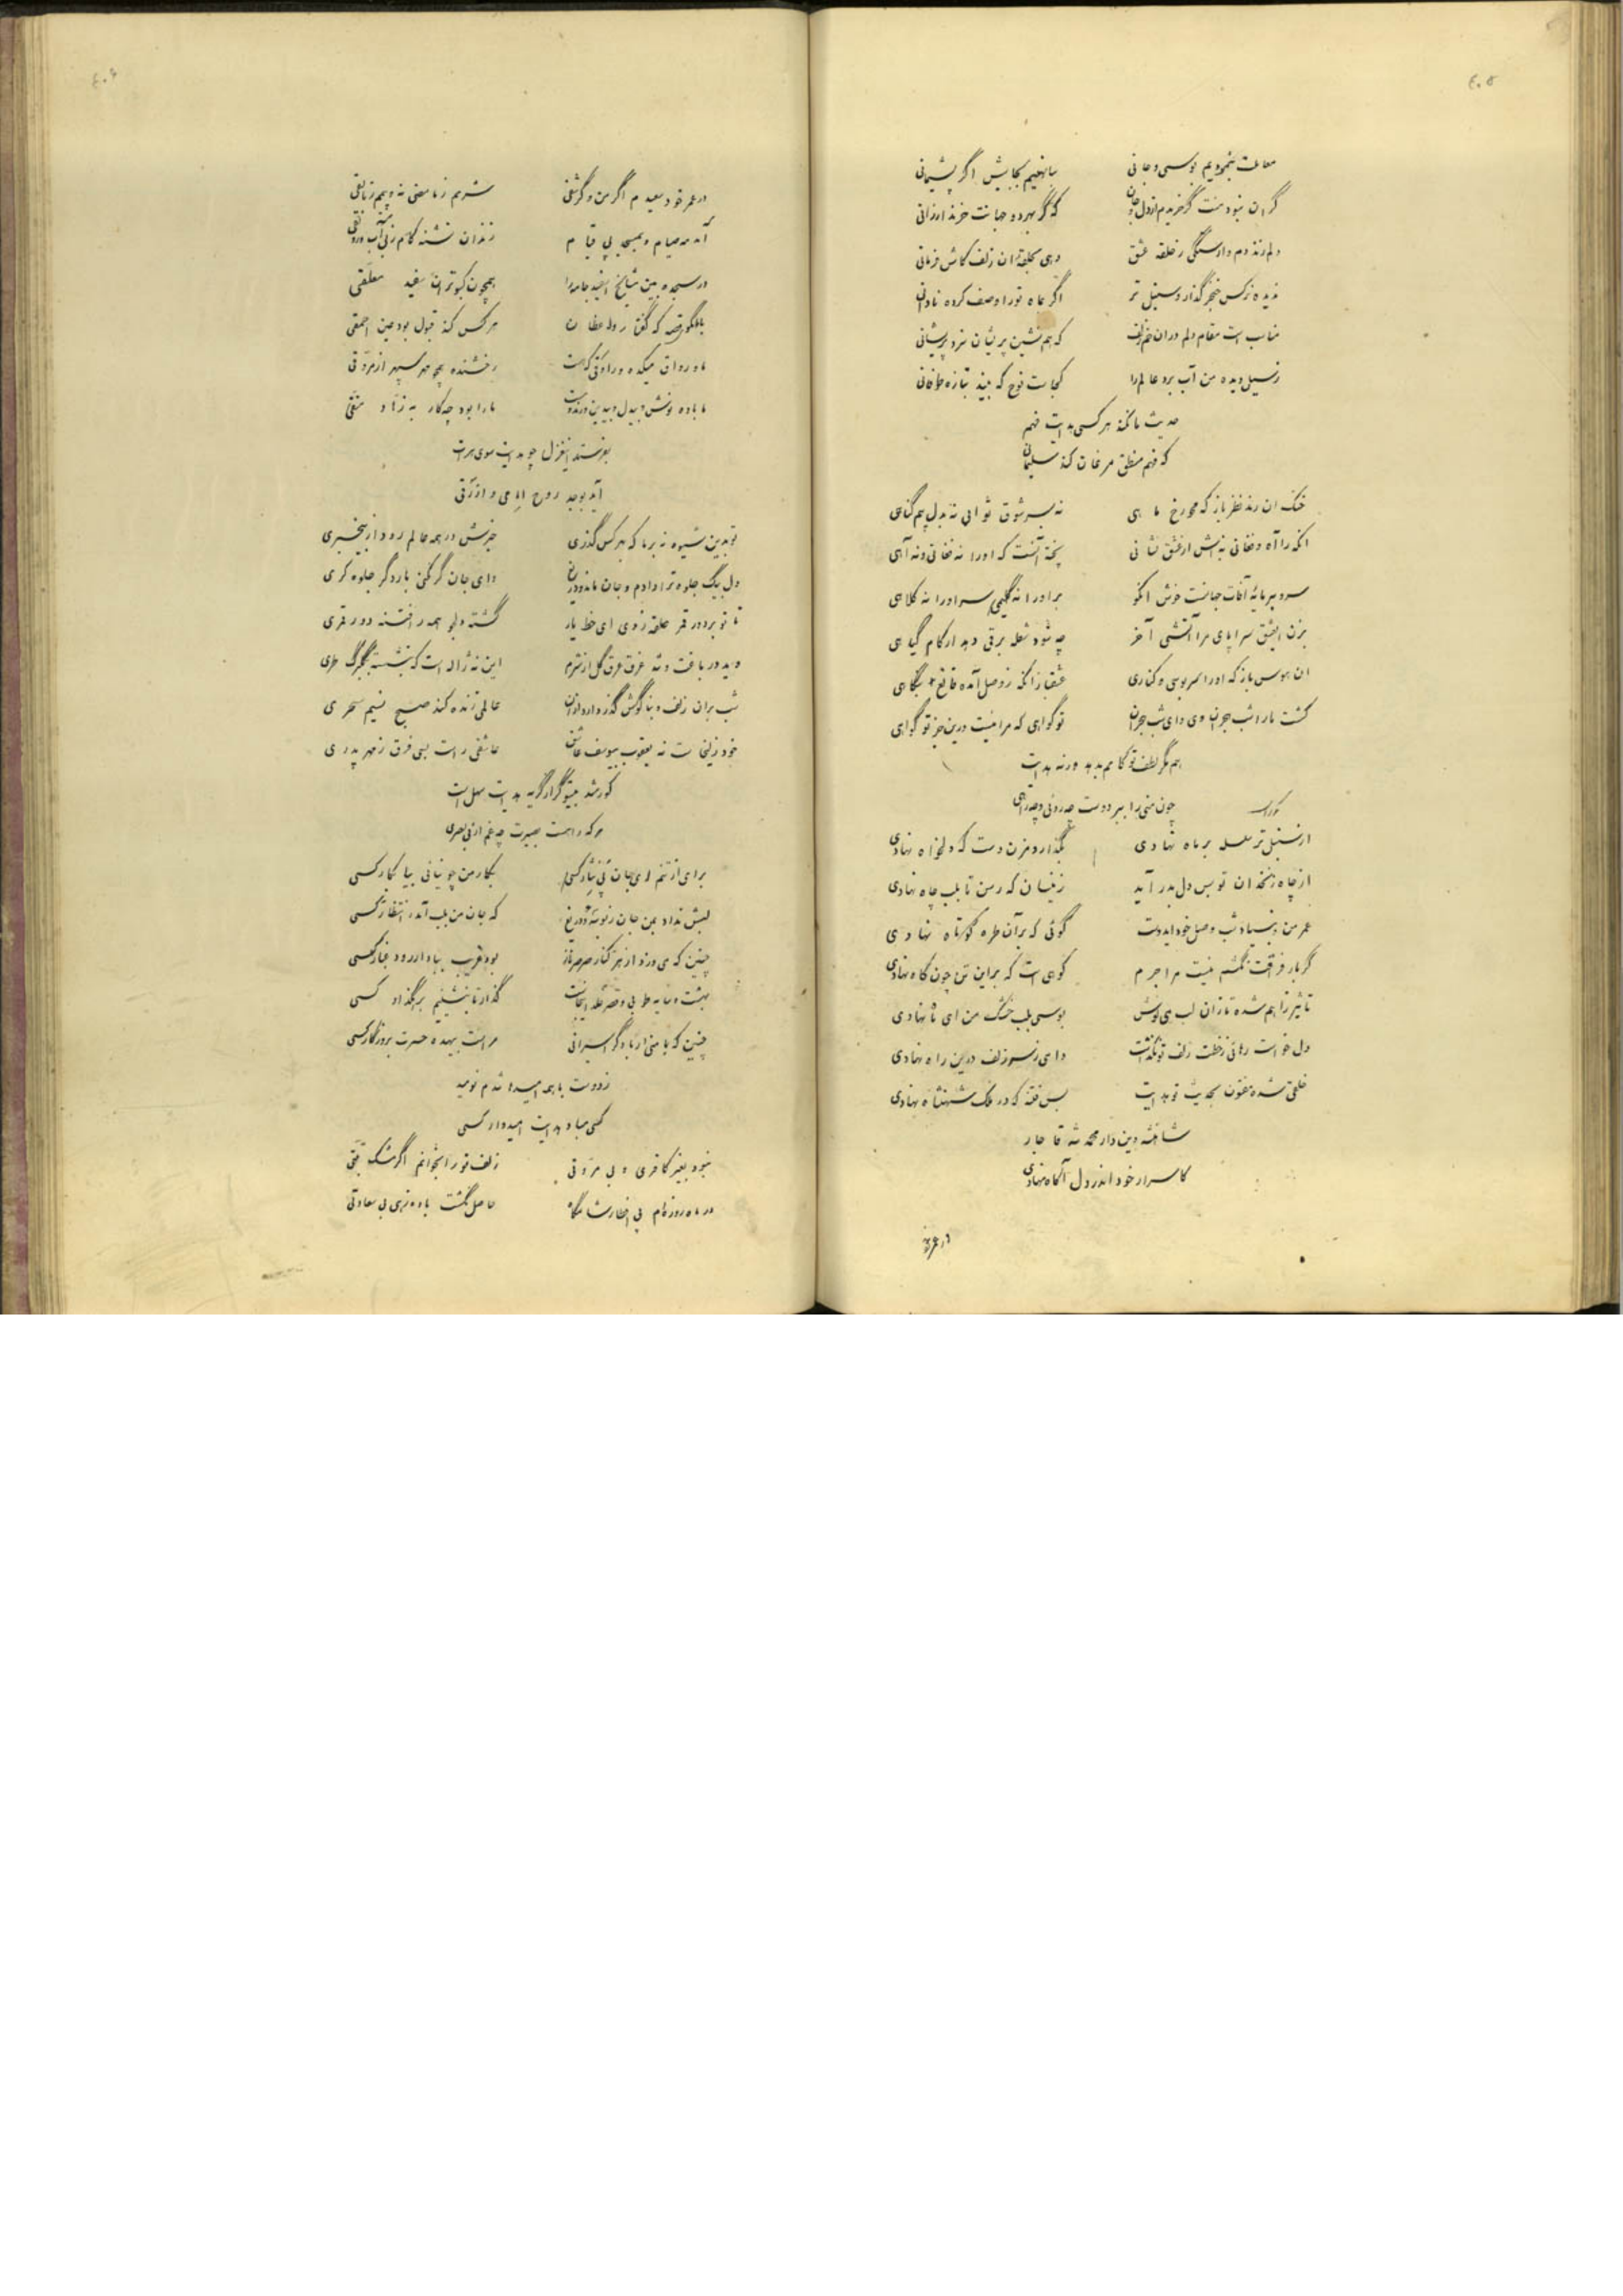 ٤٠٥
معاملت بنمودیم بوسی و جانی
بیا نهیم بجایش اگر پشیمانی
گران نبود منت گر خریدم از دل و جان
که گر بهر دو جهانت خرند ارزانی
دلم زند دم وارستگی ز حلقه عشق
دهی بحلقه ان زلف کاش فرمانی
ندیده نرکس خنجر گذار و سنبل تر
اگر بماه تو را وصف کرده نادانی
مناسب است مقام دلم در ان خم زلف
که هم نشین پریشان سزد پریشانی
ز سیل دیده من آب برد عالم را
کجاست نوح که بیند بتازه طوفانی
حدیث ما نکند هر کسی هدایت فهم
که فهم منطق مرغان کند سلیمانی
خنک ان رند نظرباز که بر رخ ماهی
نه بسر شوق ثوابی نه بدل بیم گناهی
انکه را آه و فغانی نه اش از عشق نشانی
پخته آنست که او را نه فغانی و نه آهی
بر او را نه گلیمی سر او را نه کلاهی
بزن ایعشق سراپای مرا آتشی آخر
چه شود شعله برقی دهد ار کام گیاهی
ان هوس باز که او را سر بوسی و کناری
عشقباز انکه ز وصل آمده قانع بنگاهی
کشت ما را شب هجران وی و ای شب هجران
تو گواهی که مرا نیست درین جز تو گواهی
هم مگر لطف تو کامم بدهد ورنه هدایت
چون منی را ببر دوست چه روئی و چه راهی
از سنبل تر سلسله بر ماه نهادی
بگذار و مزن دست که دلخواه نهادی
از چاه زنخدان تو بس دل بدر آید
زینسان که رسن تا بلب چاه نهادی
عمر من و بنیاد شب وصل خود ایدوست
گوئی که بر آن طره کوتاه نهادی
گر بار فراقت نکشم نیست مرا جرم
کوهی است که بر این تن چون کاه نهادی
بوسی بلب خشک من ای شاه نهادی
دل خواست رهائی ز خطت زلف تو نگذاشت
دامی ز سر زلف درین راه نهادی
خلقی شده مفتون بحدیث تو هدایت
بس فتنه که در ملک شهنشاه نهادی
شاهنشه دین دار محمد شه قاجار
کاسرار خود اندر دل آگاه نهادی
در عمر خود
٤٠٦
در عمر خود سعیدم اگر من و گر شقی
شرمم ز پارسائی نه و بیمم ز نابقی
آمد مه صیام و بمسجد پی قیام
در سجده بین مشایخ اسفید جامه را
همچون کبوتران سفید معلقی
هر کس کند قبول بود عین احمقی
ما و رواق میکده و راوقی که هست
رخشنده همچو مهر سپهر از مروقی
ما باده نوش و بیدل و بیدین و رند و مست
ما را بود چه کار به زهاد و متقی
بفرستد اینغزل چو هدایت سوی هرات
آید بوجد روح امامی و ازرقی
تو بدین شیوه نه بر ما که بهر کس گذری
خبرش در همه عالم رود از بیخبری
دل بیک جلوه ترا دادم و جان ماند دریغ
وای جان گر نکنی بار دگر جلوه گری
تا تو بر دور قمر حلقه زدی ای خط یار
گشته دلجو همه را فتنه دور قمری
دید در باغت و شد غرق عرق گل از شرم
این نه ژاله است که بنشسته بگلبرگ طری
شب بران زلف و بناگوش گذر دارد از ان
عالمی زنده کند صبح نسیم سحری
خود زلیخاست نه یعقوب بیوسف عاشق
عاشقی راست بسی فرق ز مهر پدری
کور شد بیتو گر از گریه هدایت سهل است
هر که را هست بصیرت چه غم از بی بصری
برای از تنم ای جان پی نثار کسی
بکار من چو نیائی بیا بکار کسی
لبش نداد بمن جان ز بوسه و دریغ
که جان من بلب آمد در انتظار کسی
چنین که می وزد از هر کنار صرصر ناز
بود قریب بباد ار رود غبار کسی
بهشت و سایه طوبی و قصر خلد اینجاست
گذار تا بنشینم برهگذار کسی
مراست بیهده حسرت بروزگار کسی
ز دوست با همه امیدها شدم نومید
کسی مباد هدایت امیدوار کسی
نبود بغیر کافری و بی مروتی
زلف تو را بخوانم اگر مشک تبتی
در ماه روزه ام پی افطار شامگاه
حاصل نگشت باده زهی بی سعادتی